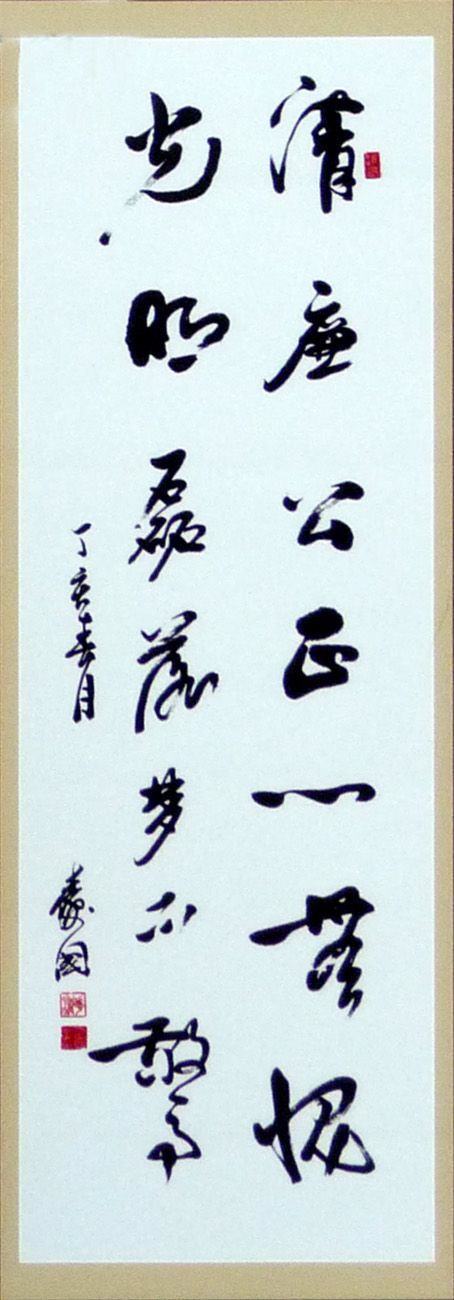 清廉公正心無愧
光明磊落梦不驚
丁亥春月
国